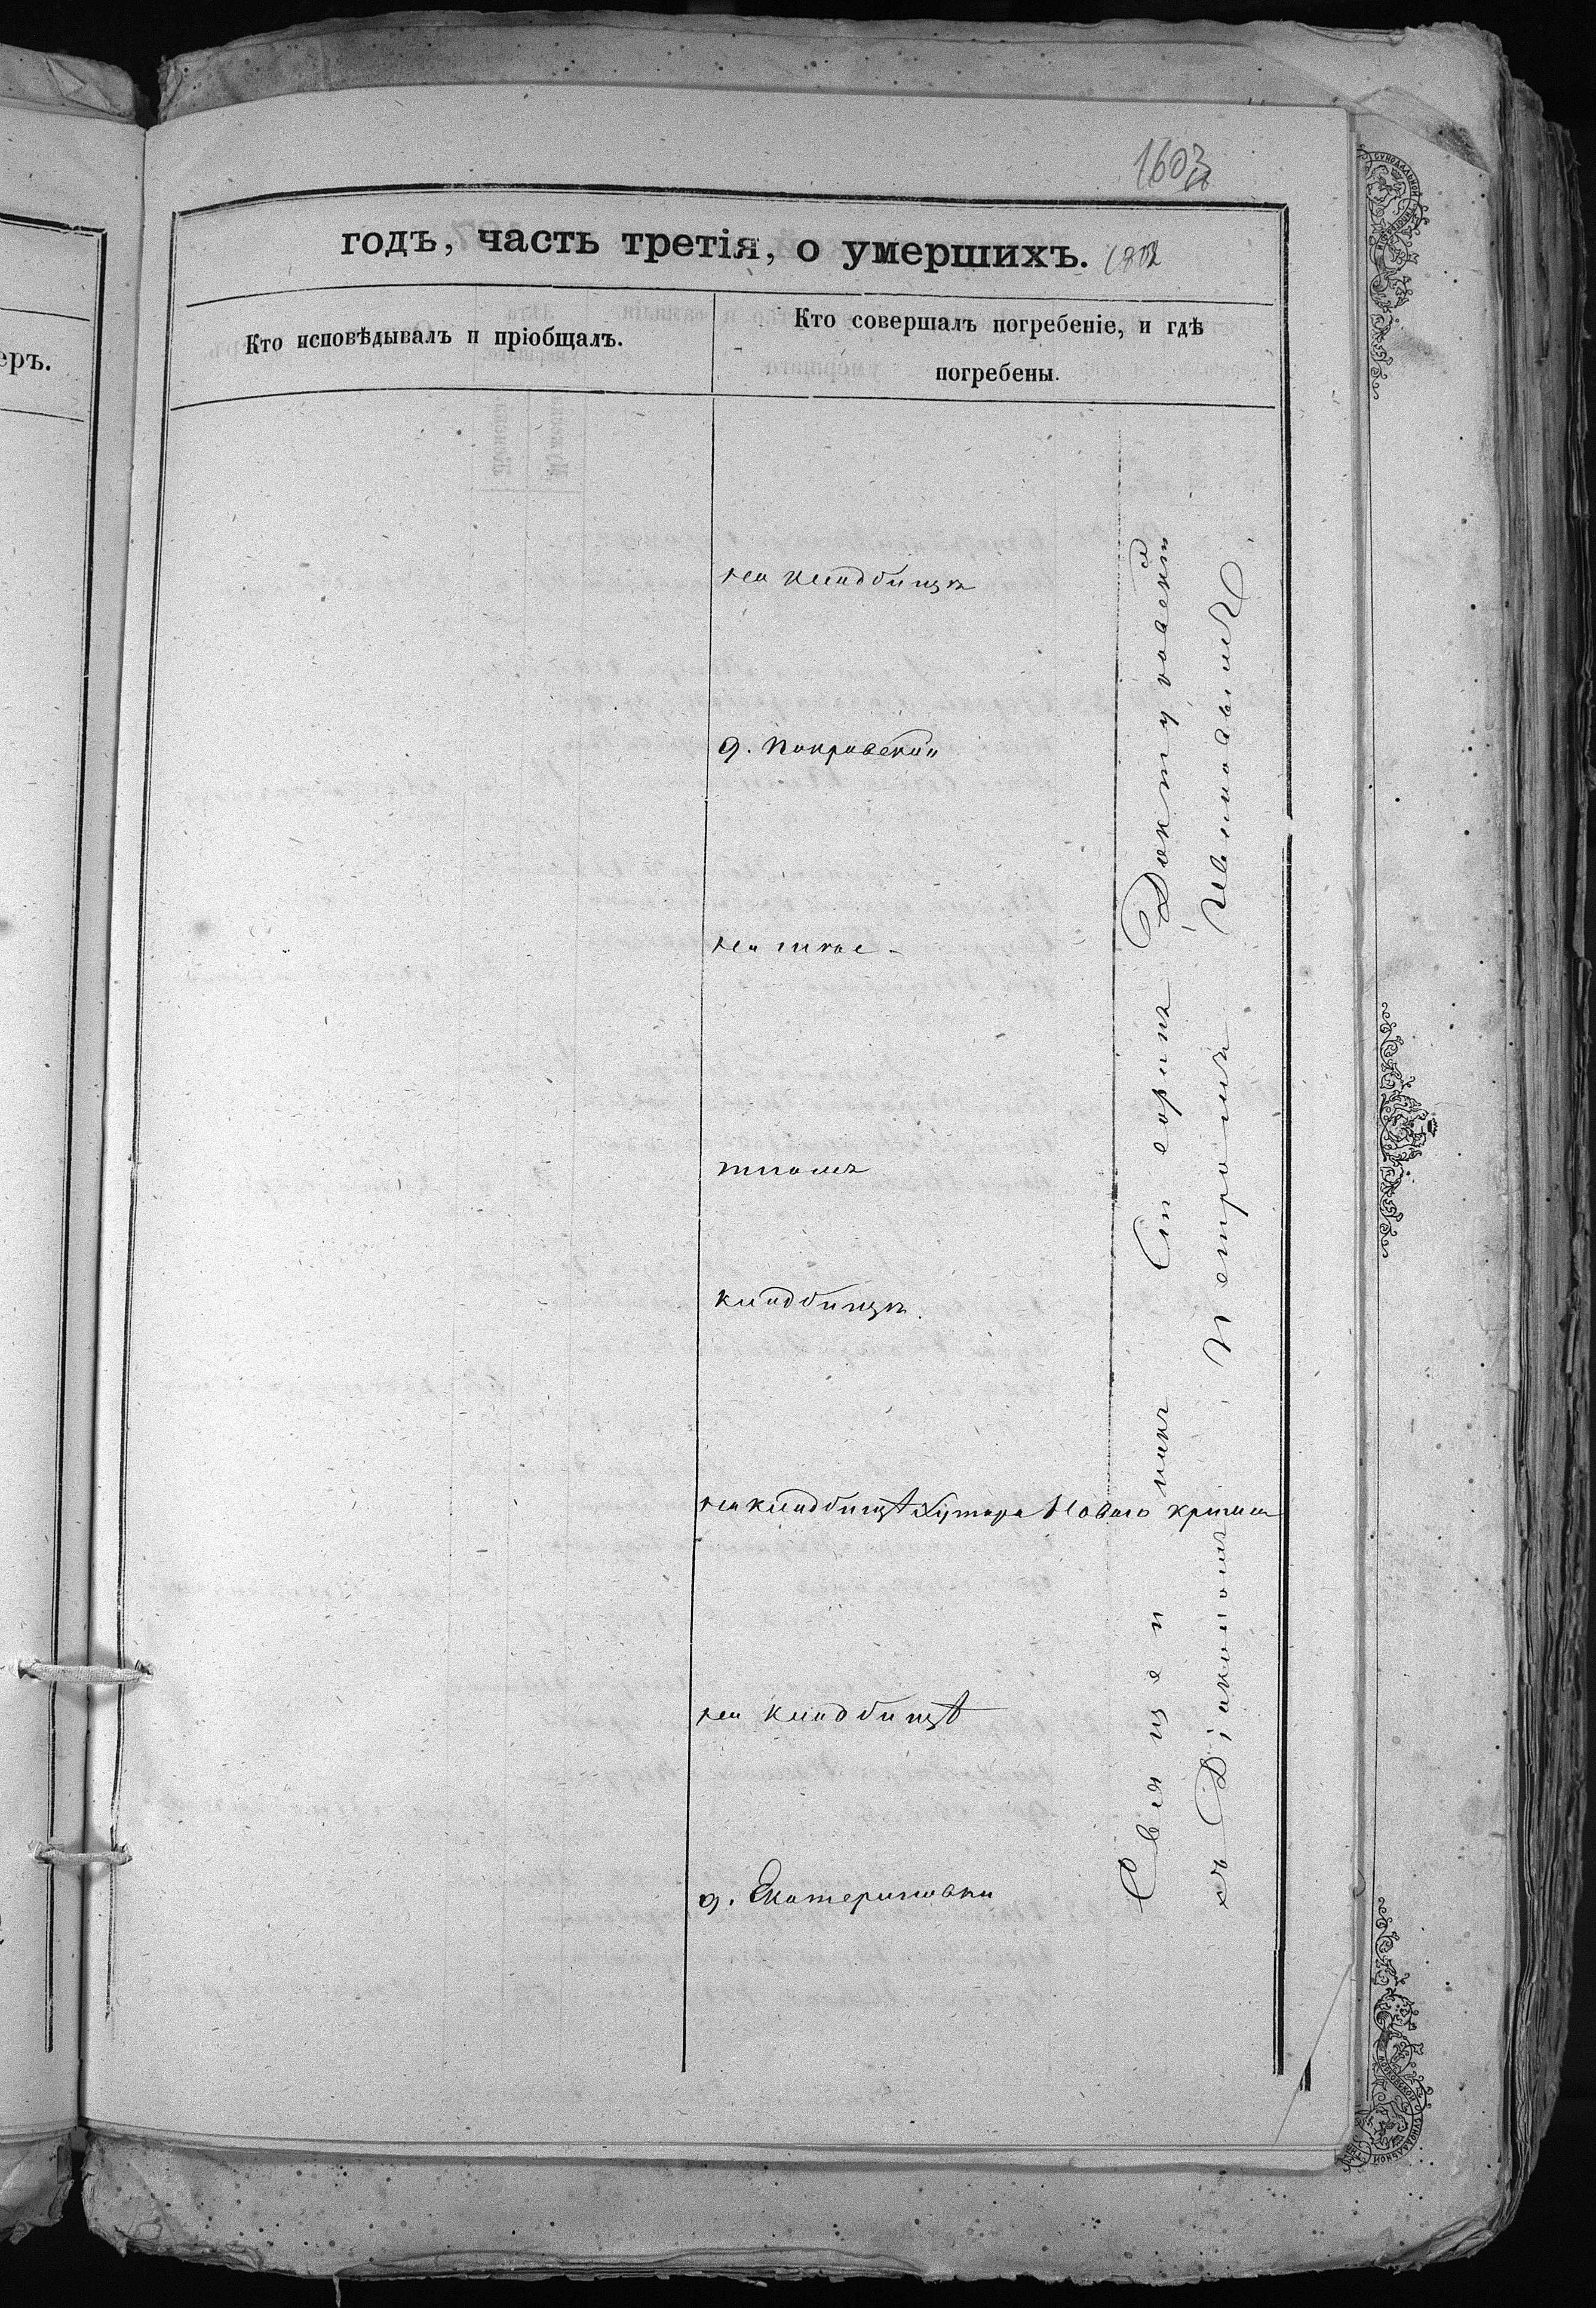 1603
годъ, часть третія, о умершихъ. 1802
еръ.
Кто исповѣдывалъ и пріобщалъ.
Кто совершалъ погребеніе, и гдѣ
погребены.
на кладбищѣ
д. Покровской
на томъ
кладбищѣ.
на кладбищѣ Хутора Новаго
на кладбищѣ
д. Екатериновки
Священникъ
съ Діакономъ Петромъ Ивановымъ